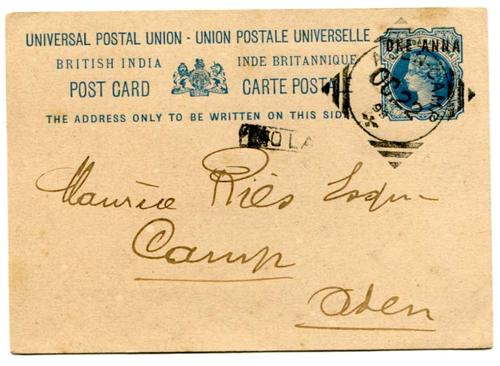 UNIVERSAL POSTAL UNION - UNION POSTALE UNIVERSELLE
BRITISH INDIA INDE BRITANNIQUE
POST CARD CARTE POSTALE
THE ADDRESS ONLY TO BE WRITTEN ON THIS SIDE
ONE ANNA
OLA
Maurice Riès Esqre
Camp
Aden